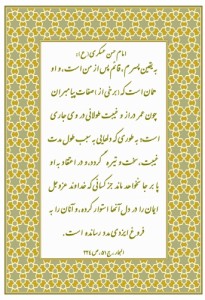 امام حسن عسکری (ع):
به یقین پسرم، قائم پس از من است، و او
همان است که برخی از صفات پیامبران
چون عمر دراز و غیبت طولانی در وی جاری
است؛ به طوری که دلهایی به سبب طول مدت
غیبت، سخت و تیره گردد، و در اعتقاد به او
پا بر جا نخواهد ماند جز کسانی که خداوند عزوجل
ایمان را در دل آنها استوار کرده، و آنان را به
فروغ ایزدی مدد رسانده است.
البحار، ج ۵۱، ص ۲۲۴